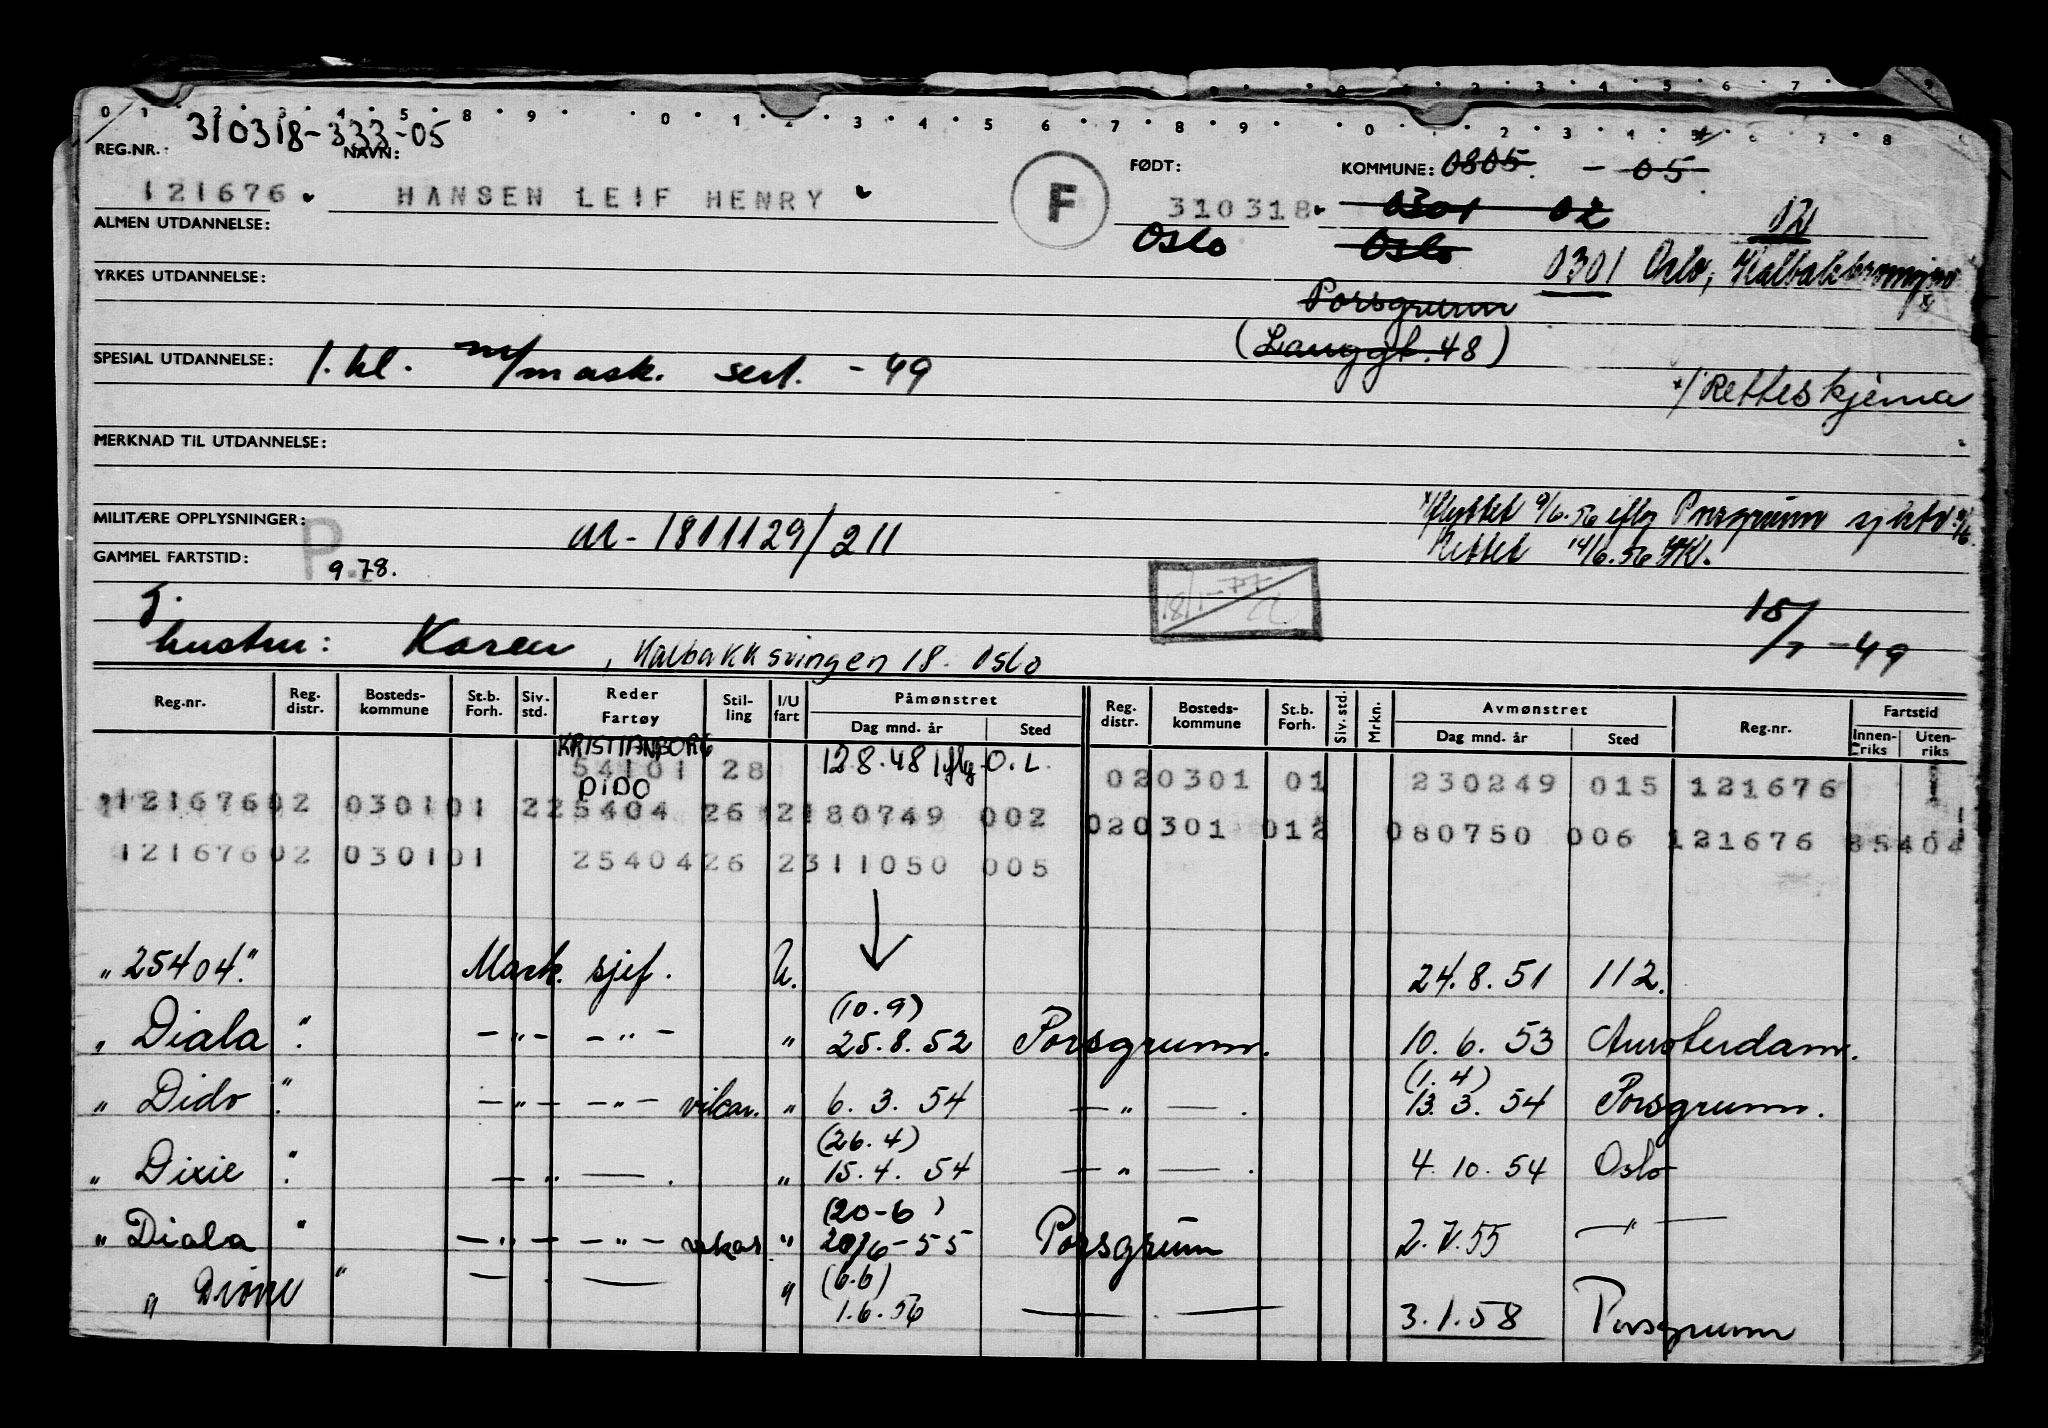 0 1 2 3 4 5 8 9 0 1 2 3 4 5 6 7 8 9 0 2 3 4 5 6 7 8
310318-333-05
REG.NR.: NAVN: FØDT: KOMMUNE: 0805. - 05.
121676 HANSEN LEIF HENRY F 310318 0301 02 02
ALMEN UTDANNELSE: Oslo Oslo 0301 Oslo,
YRKES UTDANNELSE: Porsgrunn
(Langgt. 48)
SPESIAL UTDANNELSE: 1. kl. m/mask. sert. - 49
x/ Retteskjema
MERKNAD TIL UTDANNELSE:
x/flyttet 9/6.56 iflg Porsgrunn
MILITÆRE OPPLYSNINGER: M-1811129/211
Rettet 14/6.56
GAMMEL FARTSTID: P. 9.78.
18/1-77
g. 15/7-49
hustru: Karen, Kalbakksvingen 18. Oslo
Reg.nr. Reg. distr. Bosteds-kommune St.b. Forh. Siv. std. Reder Fartøy Stil-ling I/U fart Påmønstret Dag mnd. år Sted Reg. distr. Bosteds-kommune St.b. Forh. Siv. std. Mrkn. Avmønstret Dag mnd. år Sted Reg.nr. Fartstid Innen-riks Uten-riks
KRISTIANBORG
54101 28 12 8.48 iflg. O.L. 020301 01 230249 015 121676
DIDO
12167602 030101 225404 26 2180749 002 020301 012 080750 006 121676 85404
12167602 030101 25404 26 2311050 005
"25404." Mask. sjef. U. 24.8.51 112.
(10.9)
" Diala " -"- -"- " 25.8.52 Porsgrunn. 10.6.53 Amsterdam.
(1.4)
" Dido " -"- -"- vikar. " 6.3.54 -"-. 13.3.54 Porsgrunn.
(26.4)
" Dixie " -"-. " 15.4.54 -"-. 4.10.54 Oslo
(20-6)
" Diala " -"- -"- vikar " 20/6-55 Porsgrunn 2.7.55 -"-
(6.6)
" Dione " — — " 1.6.56 — — 3.1.58 Porsgrunn